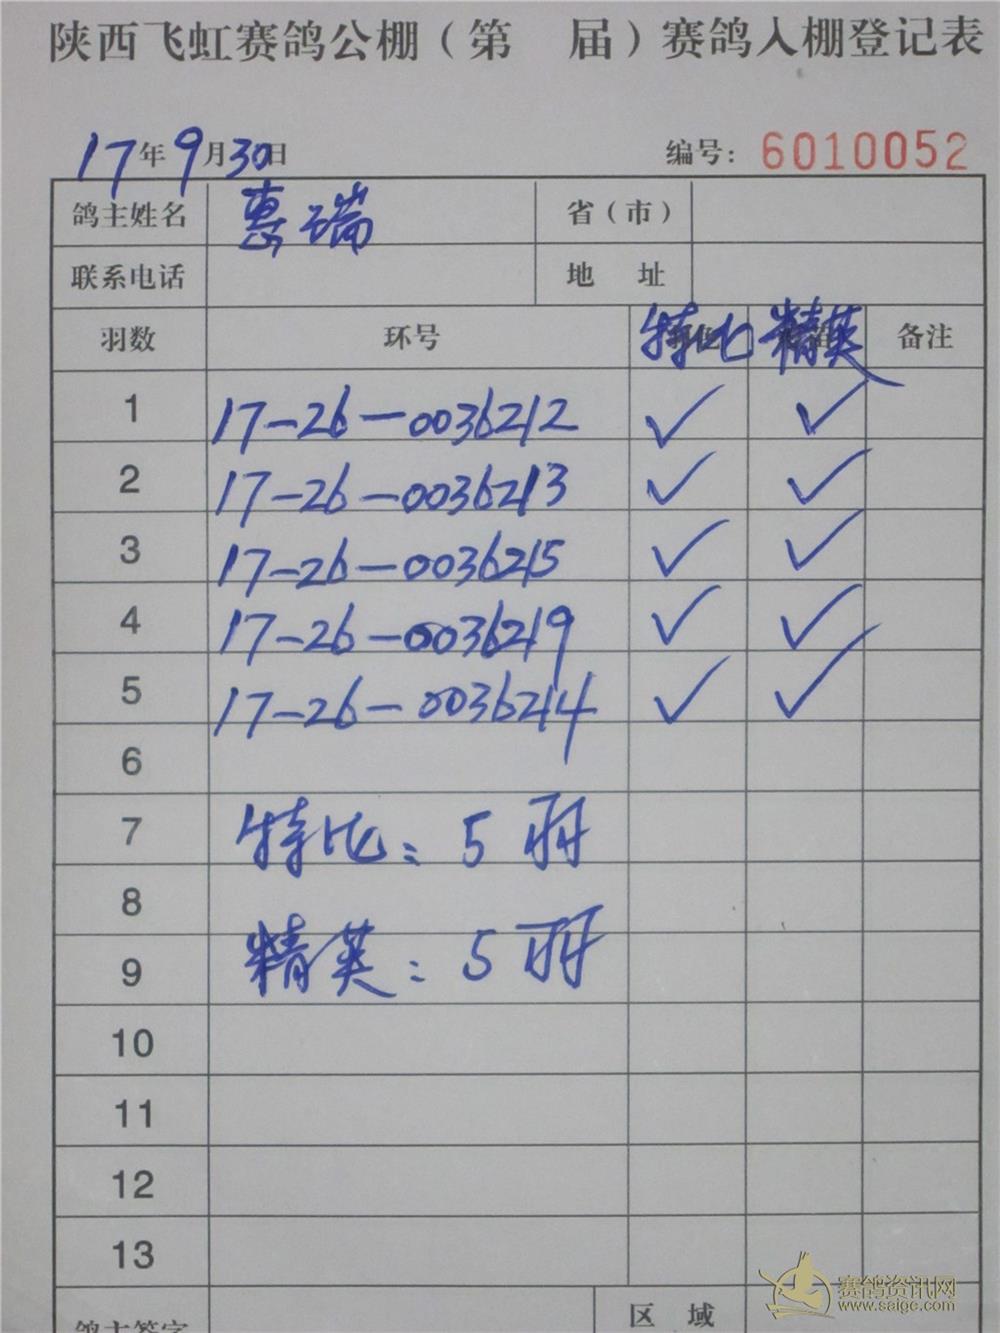 陕西飞虹赛鸽公棚（第 届）赛鸽入棚登记表
17年9月30日 编号：6010052
鸽主姓名 惠瑞 省（市）
联系电话 地 址
羽数 环号 特比 精英 备注
1 17-26-0036212 ✓ ✓
2 17-26-0036213 ✓ ✓
3 17-26-0036215 ✓ ✓
4 17-26-0036219 ✓ ✓
5 17-26-0036214 ✓ ✓
6
7 特比：5羽
8
9 精英：5羽
10
11
12
13
鸽主签字 区 域
赛鸽资讯网
www.saigc.com